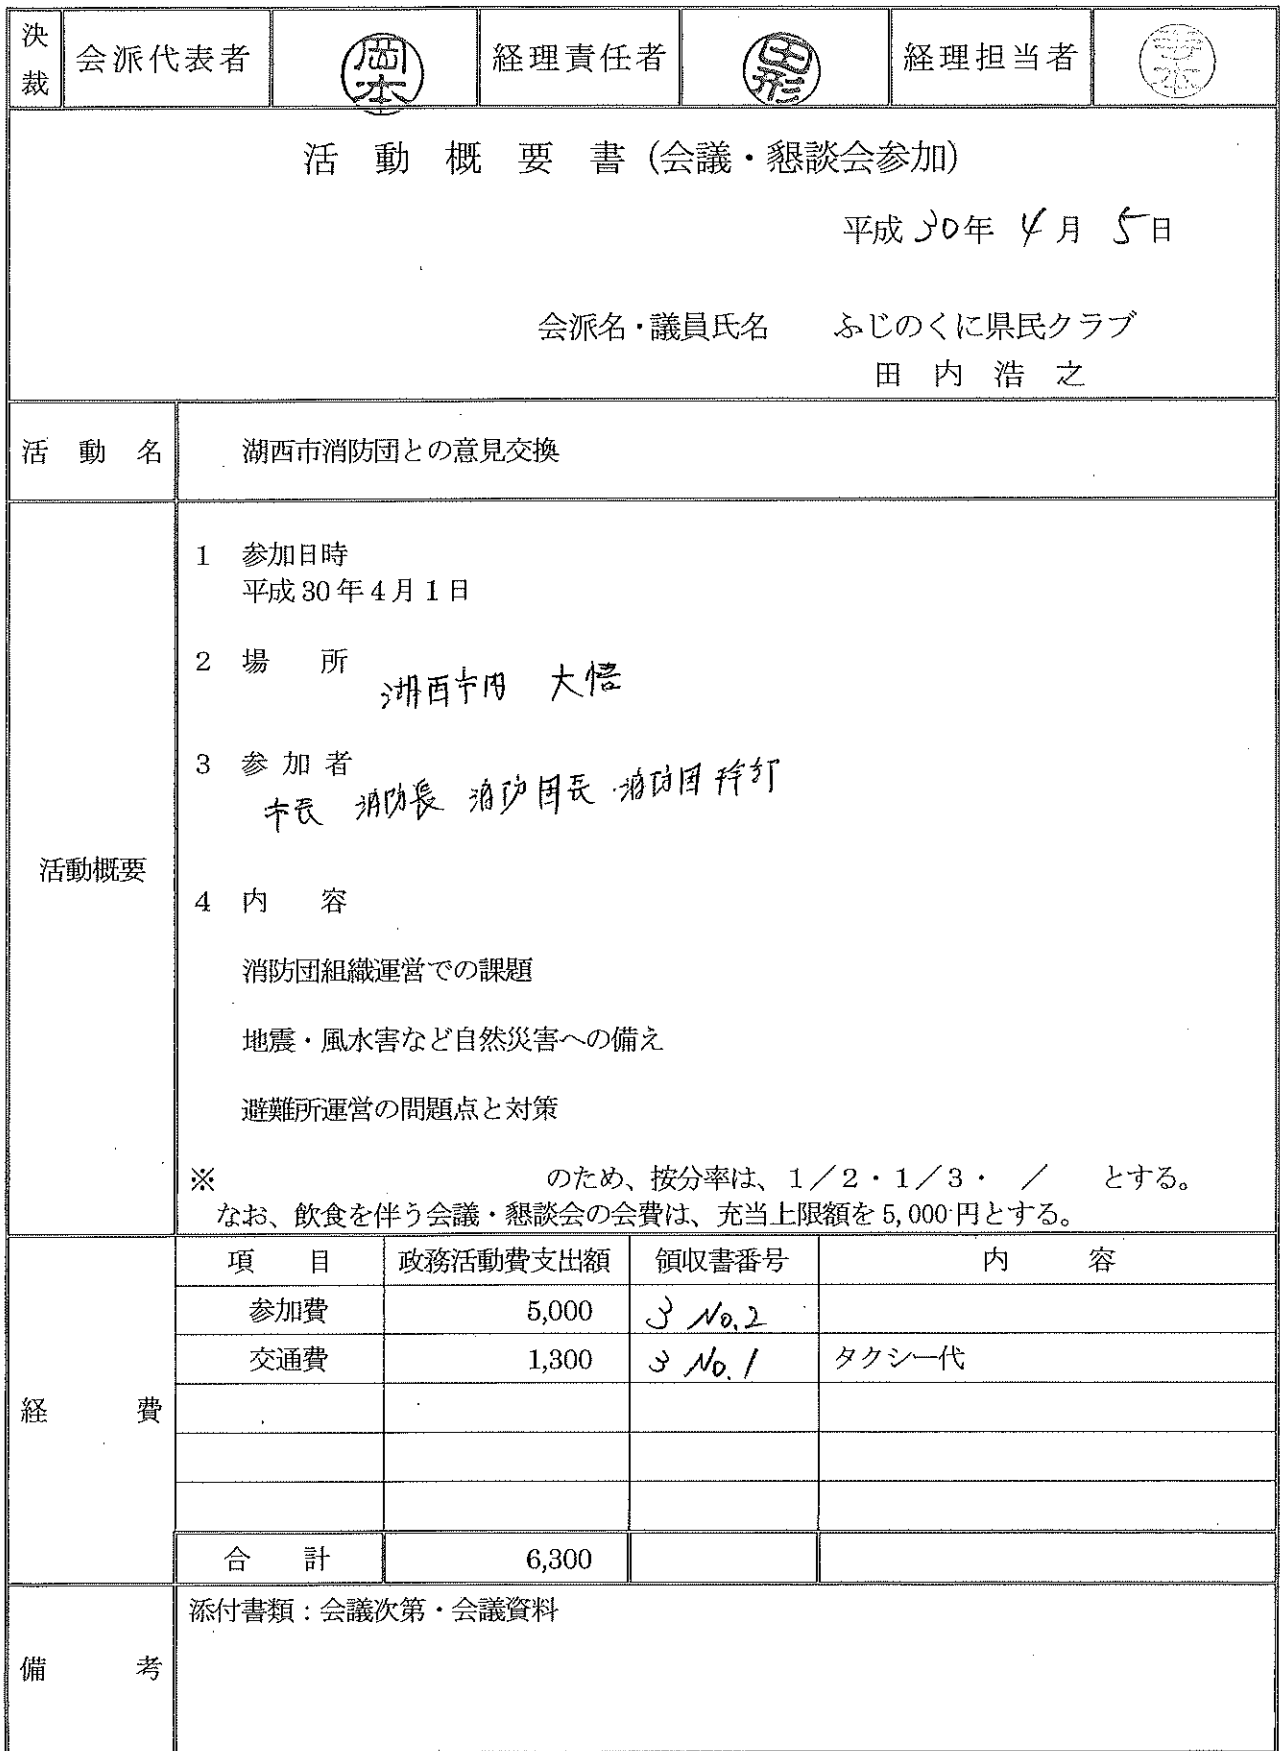 決裁 会派代表者 岡本 経理責任者 田形 経理担当者
活動概要書(会議・懇談会参加)
平成30年 4月 5日
会派名・議員氏名 ふじのくに県民クラブ
田内浩之
活動名 湖西市消防団との意見交換
活動概要
1 参加日時
平成30年4月1日
2 場所
湖西市内 大悟
3 参加者
市長 消防長 消防団長・消防団幹部
4 内容
消防団組織運営での課題
地震・風水害など自然災害への備え
避難所運営の問題点と対策
※ のため、按分率は、1/2・1/3・ / とする。
なお、飲食を伴う会議・懇談会の会費は、充当上限額を5,000円とする。
経費
項目 政務活動費支出額 領収書番号 内容
参加費 5,000 3 No.2
交通費 1,300 3 No.1 タクシー代
合計 6,300
備考 添付書類:会議次第・会議資料